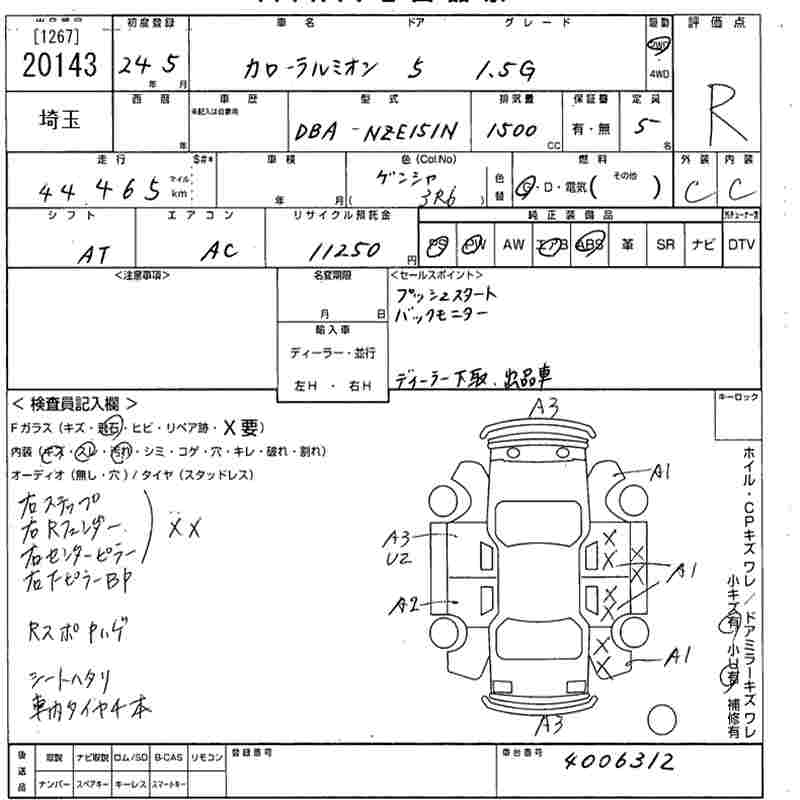 [1267]
20143
埼玉
初度登録 車名 ドア グレード 駆動 評価点
24年 5月 カローラルミオン 5 1.5G 2WD 4WD R
西暦 車歴 型式 排気量 保証書 定員
年 未記入は自家用 DBA-NZE151N 1500cc 有・無 5名
走行 S#* 車検 色(Col.No) 燃料 外装 内装
44,465 マイル km 年 月 ゲンシャ (3R6) 色替 G・D・電気( その他 ) C C
シフト エアコン リサイクル預託金 純正装備品
AT AC 11250円 PS PW AW エアB ABS 革 SR ナビ DTV
<注意事項> 名変期限 <セールスポイント>
月 日
プッシュスタート
バックモニター
輸入車
ディーラー・並行
左H・右H
ディーラー下取、出品車
キーロック
<検査員記入欄>
Fガラス(キズ・飛石・ヒビ・リペア跡・X要)
内装(キズ・スレ・汚れ・シミ・コゲ・穴・キレ・破れ・割れ)
オーディオ(無し・穴)/タイヤ(スタッドレス)
右ステップ
右Rフェンダー
右センターピラー
XX
右Fピラー BP
Rスポ ヤハゲ
シートヘタリ
車内タイヤ4本
A3
A1
A3
U2
A1
A2
A1
A3
ホイル・CPキズ ワレ/ドアミラーキズ ワレ
小キズ有 小U有 補修有
後送品 取説 ナビ取説 ロム/SD B-CAS リモコン 登録番号 車台番号
ナンバー スペアキー キーレス スマートキー 4006312